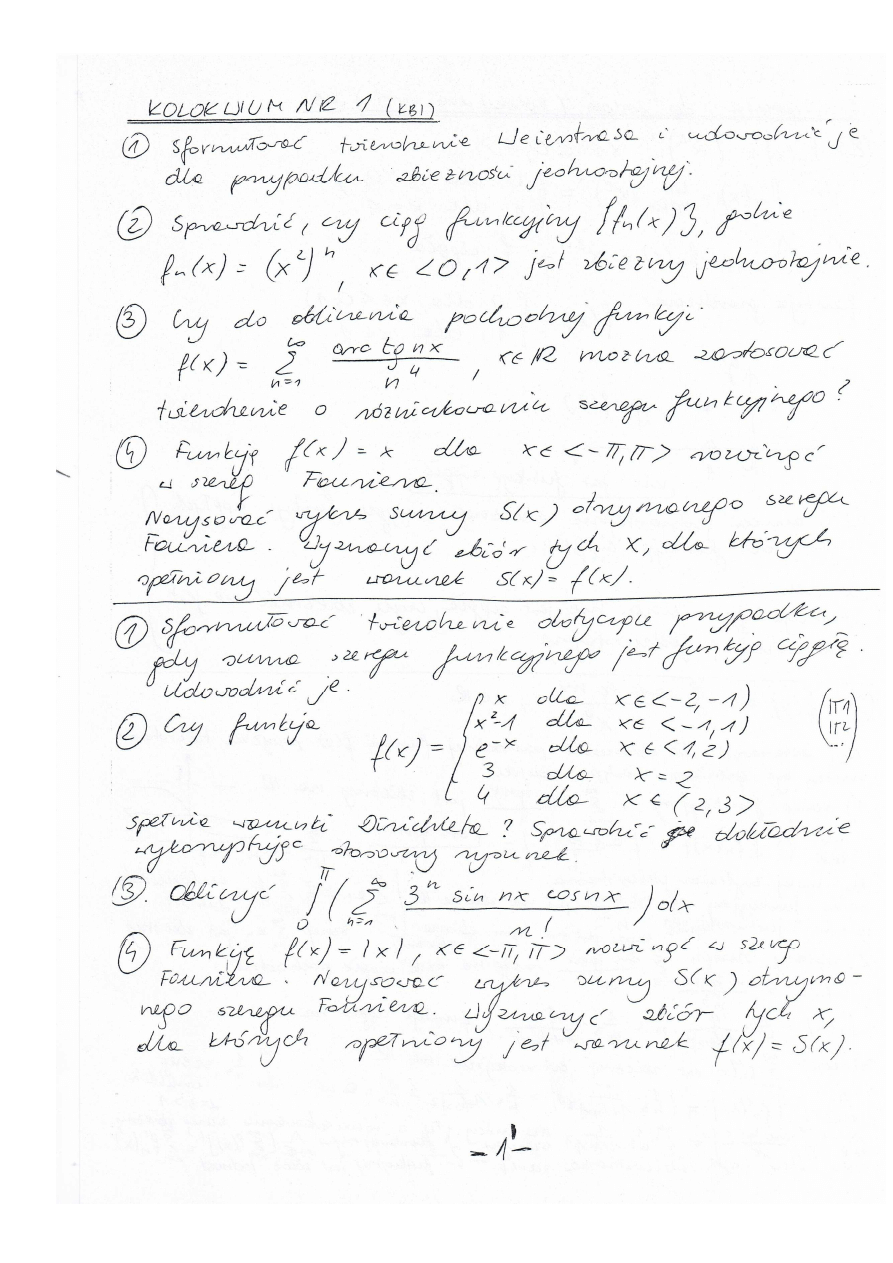 KOLOKWIUM NR 1 (KBI)
① Sformułować twierdzenie Weierstrasa i udowodnić je
dla przypadku zbieżności jednostajnej.
② Sprawdzić, czy ciąg funkcyjny {fn(x)}, gdzie
fn(x) = (x²)ⁿ, x∈ <0,1> jest zbieżny jednostajnie.
③ Czy do obliczenia pochodnej funkcji
f(x) = ∞∑n=1 arc tg nx / n⁴, x∈ℝ można zastosować
twierdzenie o różniczkowaniu szeregu funkcyjnego?
④ Funkcję f(x) = x dla x∈ <-π,π> rozwinąć
w szereg Fouriera.
Narysować wykres sumy S(x) otrzymanego szeregu
Fouriera. Wyznaczyć zbiór tych x, dla których
spełniony jest warunek S(x) = f(x).
① Sformułować twierdzenie dotyczące przypadku,
gdy suma szeregu funkcyjnego jest funkcją ciągłą.
Udowodnić je.
② Czy funkcja f(x) = { x dla x∈<-2,-1)
x²-1 dla x∈ <-1,1)
e⁻ˣ dla x∈<1,2)
3 dla x=2
4 dla x∈(2,3>
spełnia warunki Dirichleta? Sprawdzić je dokładnie
wykonując stosowny rysunek.
③. Obliczyć ∫₀^π ( ∞∑n=1 3ⁿ sin nx cos nx / n! ) dx
④ Funkcję f(x) = |x|, x∈<-π,π> rozwinąć w szereg
Fouriera. Narysować wykres sumy S(x) otrzyma-
nego szeregu Fouriera. Wyznaczyć zbiór tych x,
dla których spełniony jest warunek f(x) = S(x).
-1'-